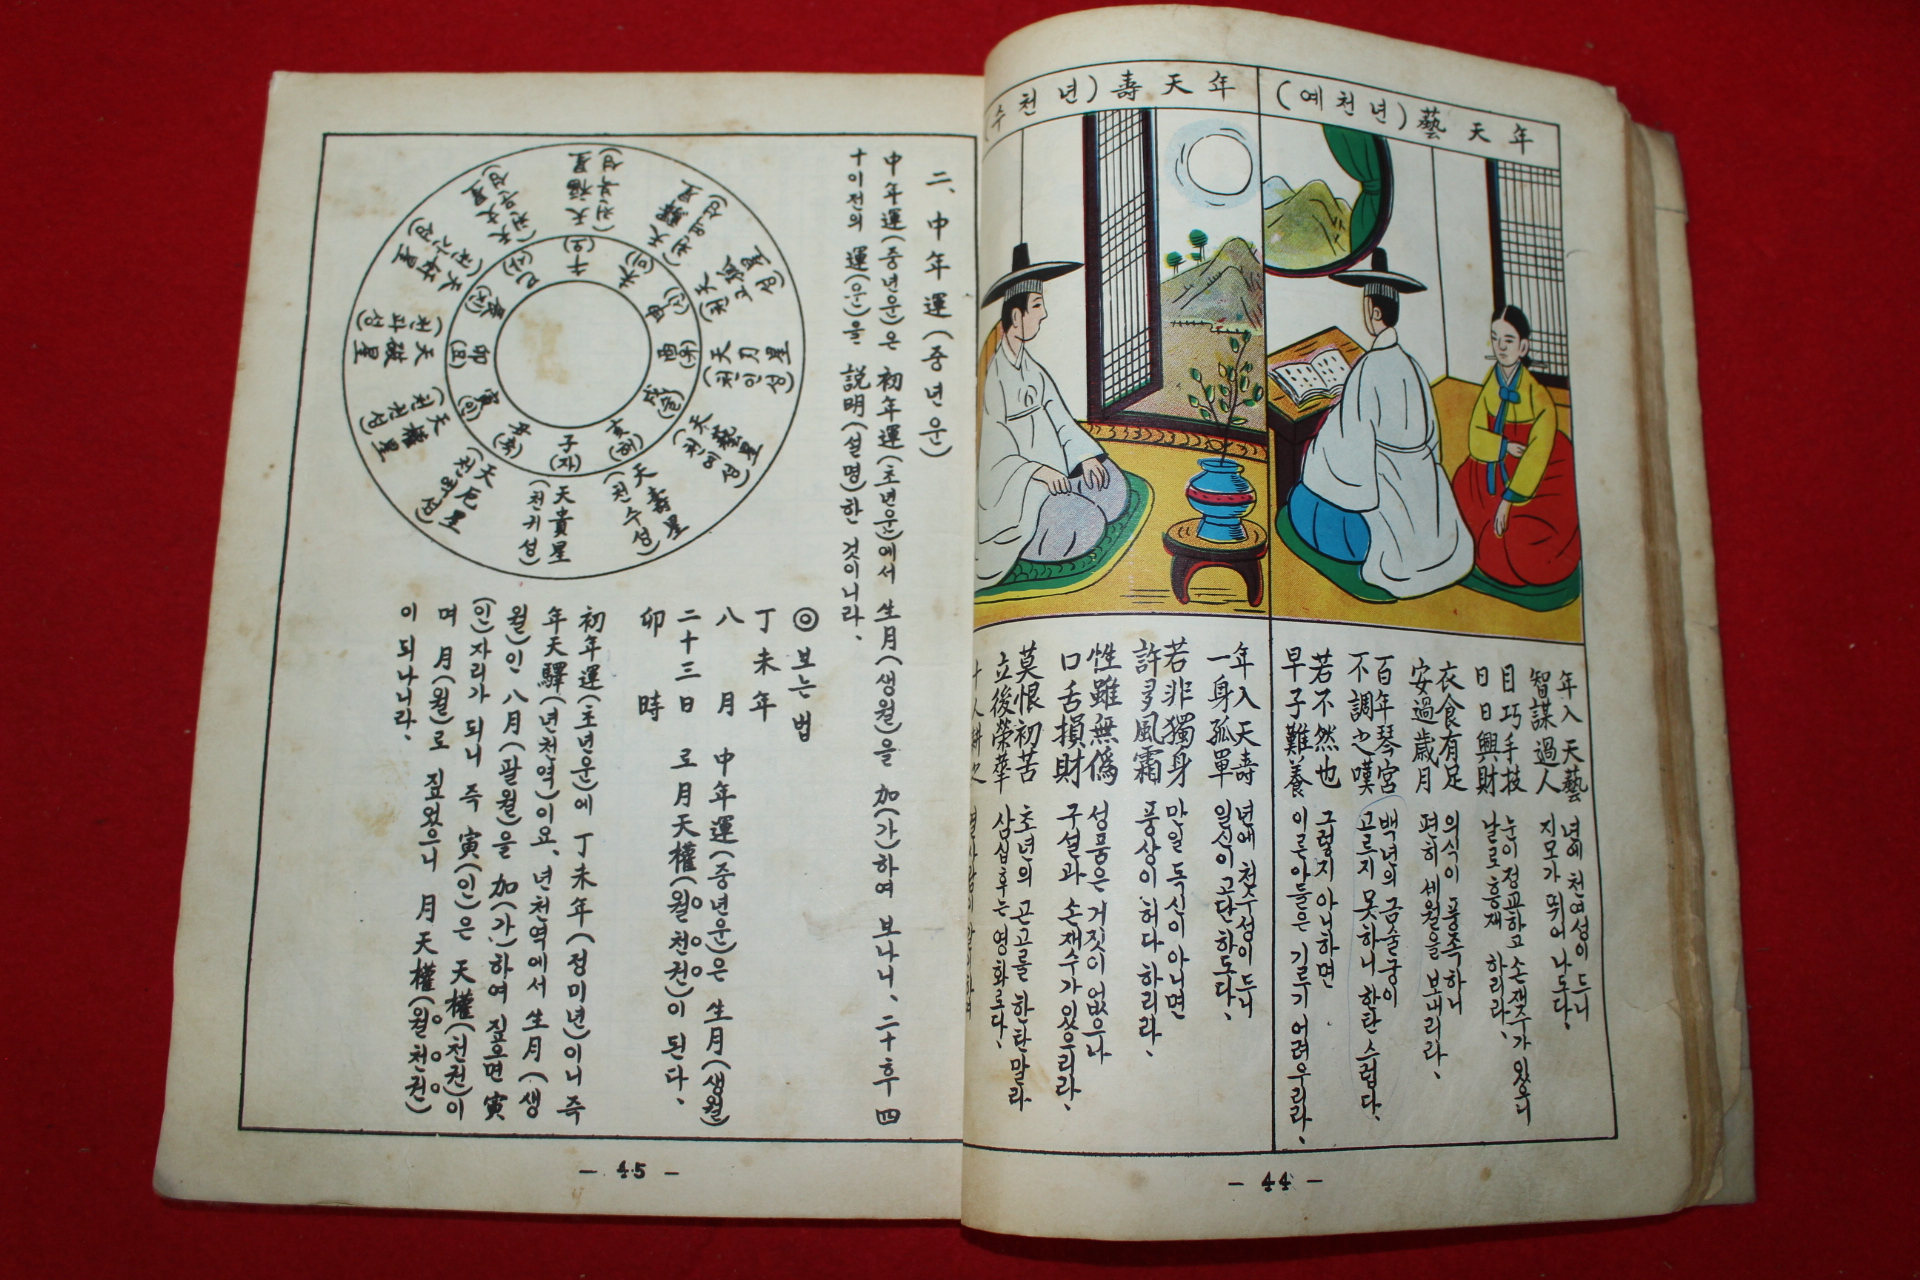 年天藝(년천예)
年入天藝 년에 천예성이 드니
智謀過人 지모가 뛰어나도다、
目巧手技 눈이 정교하고 손재주가 있으니
日日興財 날로 흥재 하리라、
衣食有足 의식이 풍족하니
安過歲月 편히 세월을 보내리라、
百年琴宮 백년의 금슬궁이
不調之嘆 고르지 못하니 한탄스럽다、
若不然也 그렇지 아니하면
早子難養 이른아들은 기르기 어려우리라、
年天壽(년천수
年入天壽 년에 천수성이 드니
一身孤單 일신이 고단하도다、
若非獨身 만일 독신이 아니면
許多風霜 풍상이 허다 하리라、
性雖無僞 성품은 거짓이 없으나
口舌損財 구설과 손재수가 있으리라、
莫恨初苦 초년의 곤고를 한탄말라
立後榮華 삼십후는 영화로다、
- 44 -
二、中年運(중년운)
中年運(중년운)은 初年運(초년운)에서 生月(생월)을 加(가)하여 보나니、二十후 四
十이전의 運(운)을 説明(설명)한 것이니라、
子(자)
天貴星(천귀성)
丑(축)
天厄星(천액성)
寅(인)
天權星(천권성)
卯(묘)
天破星(천파성)
辰(진)
天奸星(천간성)
巳(사)
天文星(천문성)
午(오)
天福星(천복성)
未(미)
天驛星(천역성)
申(신)
天孤星(천고성)
酉(유)
天刃星(천인성)
戌(술)
天藝星(천예성)
亥(해)
天壽星(천수성)
◎보는법
丁未年
八月
二十三日
卯時
中年運(중년운)은 生月(생월)
로 月天權(월천권)이 된다、
初年運(초년운)에 丁未年(정미년)이니 즉
年天驛(년천역)이요、년천역에서 生月(생
월)인 八月(팔월)을 加(가)하여 짚으면 寅
(인)자리가 되니 즉 寅(인)은 天權(천권)이
며 月(월)로 짚었으니 月天權(월천권)
이 되나니라、
- 45 -